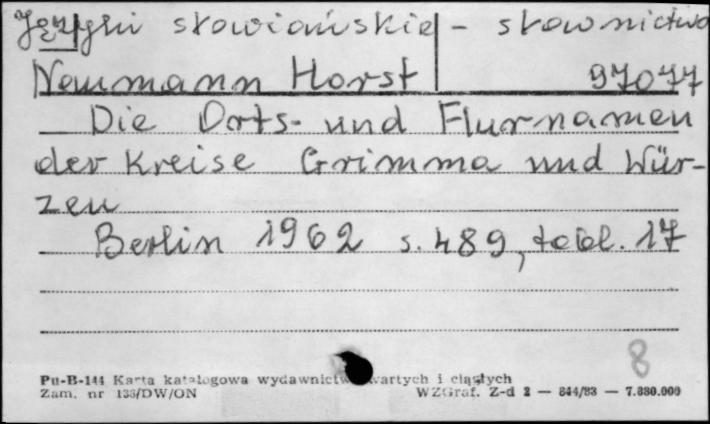 Języki słowiańskie - słownictwo
Neumann Horst 97077
Die Orts- und Flurnamen
der Kreise Grimma und Wür-
zen
Berlin 1962 s. 489, tabl. 17
8
Pu-B-144 Karta katalogowa wydawnictw zwartych i ciągłych
Zam. nr 133/DW/ON WZGraf. Z-d 2 — 844/83 — 7.880.000